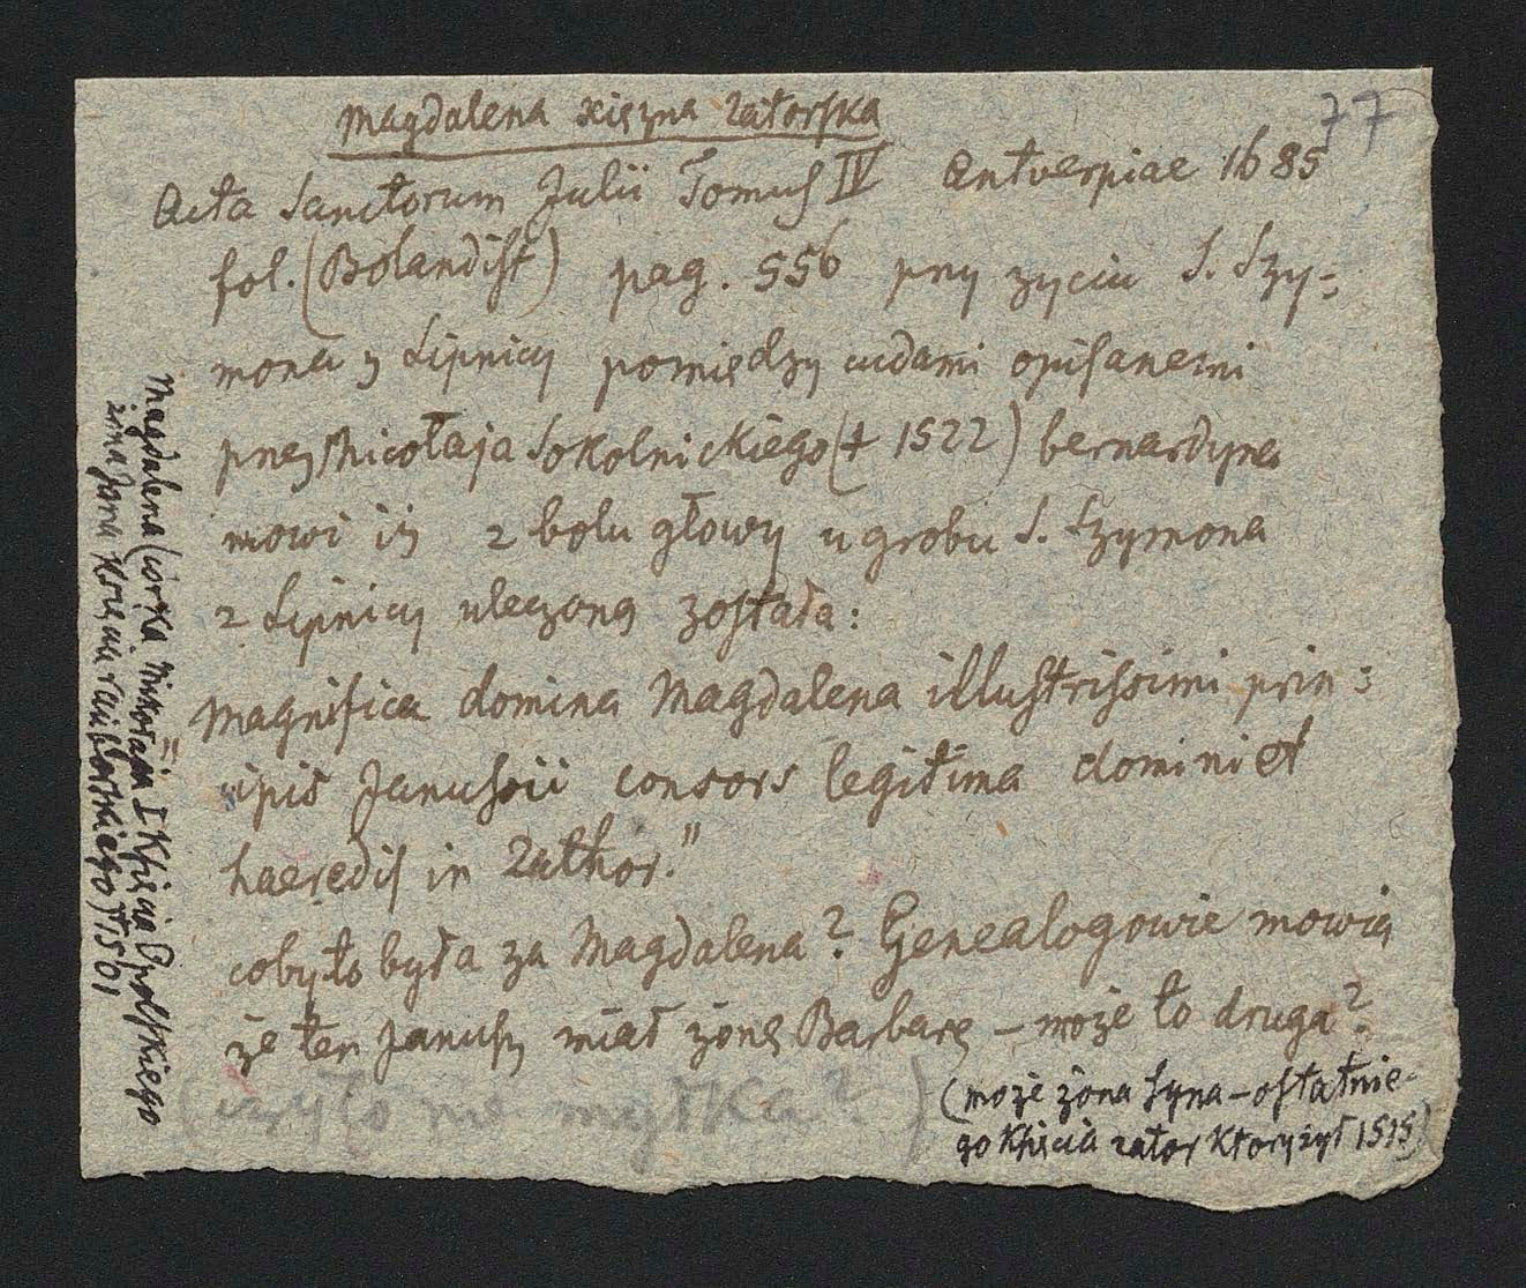 77
Magdalena xiężna Zatorska
Acta Sanctorum Julii Tomus IV Antverpiae 1685
fol. (Bolandist) pag. 556 przy zyciu S. Szy=
mona z Lipnicy pomiędzy cudami opisanemi
przez Micołaja Sokolnickiego († 1522) bernardyna
mowi iż z bolu głowy u grobu S. Szymona
z Lipnicy uleczoną została:
"Magnifica domina Magdalena illustrissimi prin=
cipis Janussii consors legitima domini et
haeredis in Zathor."
coby to była za Magdalena? Genealogowie mowią
że ten Janusz miał żonę Barbarę – może to druga?
(czy to nie myłka?)
(może żona syna – ostatnie-
go Księcia zator który żył 1515)
Magdalena (córka Mikołaja I Księcia Opolskiego
żona Jana Księcia raciborskiego) †1501